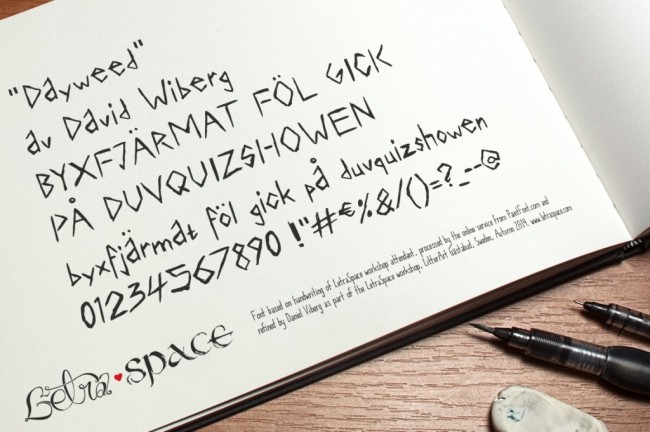 "Dayweed"
av David Wiberg
BYXFJÄRMAT FÖL GICK
PÅ DUVQUIZSHOWEN
byxfjärmat föl gick på duvquizshowen
01234567890 !"#€%&/()=?_--@
Font based on handwriting of LetraSpace workshop attendant, processed by the online service from PaintFont.com and
refined by Daniel Viberg as part of the LetraSpace workshop, LitterArt Västabud, Sweden, Autumn 2014. www.letraspace.com
Letra♥space